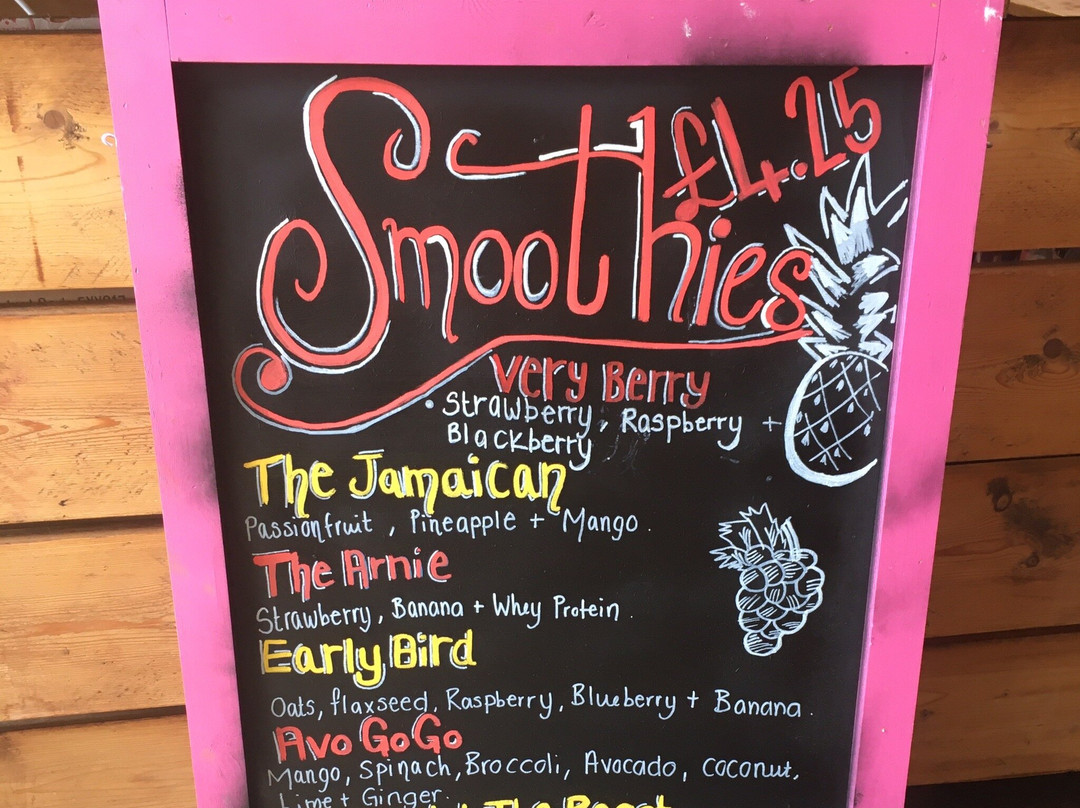 Smoothies £4.25
Very Berry
• Strawberry, Raspberry +
Blackberry
The Jamaican
Passionfruit, Pineapple + Mango.
The Arnie
Strawberry, Banana + Whey Protein.
Early Bird
Oats, flaxseed, Raspberry, Blueberry + Banana.
Avo GoGo
Mango, Spinach, Broccoli, Avocado, coconut,
Lime + Ginger.
The